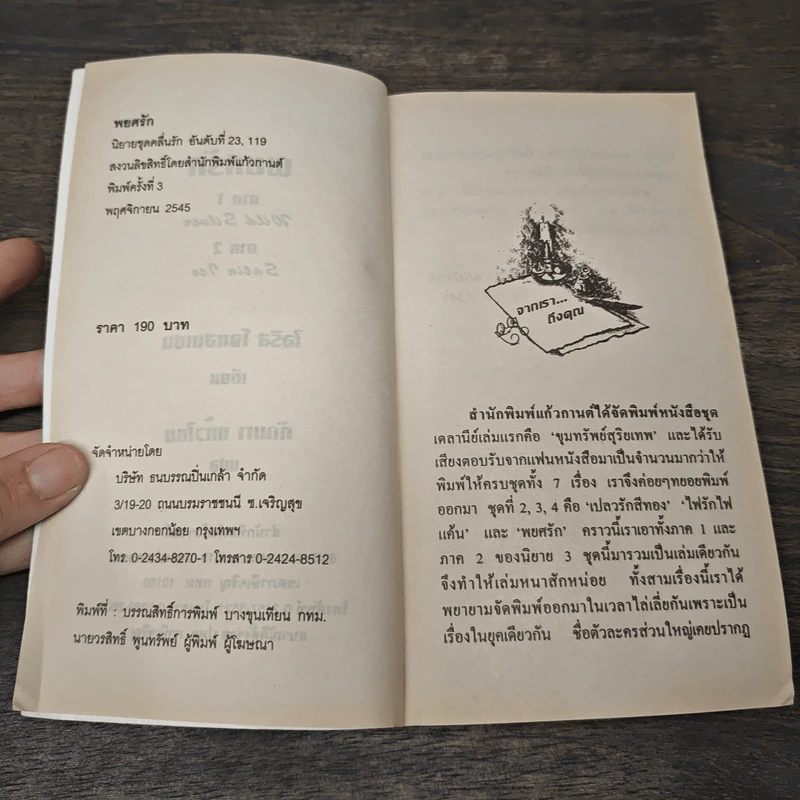 พยศรัก
นิยายชุดคลื่นรัก อันดับที่ 23, 119
สงวนลิขสิทธิ์โดยสำนักพิมพ์แก้วกานต์
พิมพ์ครั้งที่ 3
พฤศจิกายน 2545
ราคา 190 บาท
จัดจำหน่ายโดย
บริษัท ธนบรรณปิ่นเกล้า จำกัด
3/19-20 ถนนบรมราชชนนี ซ.เจริญสุข
เขตบางกอกน้อย กรุงเทพฯ
โทร. 0-2434-8270-1 โทรสาร 0-2424-8512
พิมพ์ที่ : บรรณสิทธิ์การพิมพ์ บางขุนเทียน กทม.
นายวรสิทธิ์ พูนทรัพย์ ผู้พิมพ์ ผู้โฆษณา
จากเรา...
ถึงคุณ
สำนักพิมพ์แก้วกานต์ได้จัดพิมพ์หนังสือชุด
เดลานีย์เล่มแรกคือ 'ขุมทรัพย์สุริยเทพ' และได้รับ
เสียงตอบรับจากแฟนหนังสือมาเป็นจำนวนมากว่าให้
พิมพ์ให้ครบชุดทั้ง 7 เรื่อง เราจึงค่อยๆทยอยพิมพ์
ออกมา ชุดที่ 2, 3, 4 คือ 'เปลวรักสีทอง' 'ไฟรักไฟ
แค้น' และ 'พยศรัก' คราวนี้เราเอาทั้งภาค 1 และ
ภาค 2 ของนิยาย 3 ชุดนี้มารวมเป็นเล่มเดียวกัน
จึงทำให้เล่มหนาสักหน่อย ทั้งสามเรื่องนี้เราได้
พยายามจัดพิมพ์ออกมาในเวลาไล่เลี่ยกันเพราะเป็น
เรื่องในยุคเดียวกัน ชื่อตัวละครส่วนใหญ่เคยปรากฏ